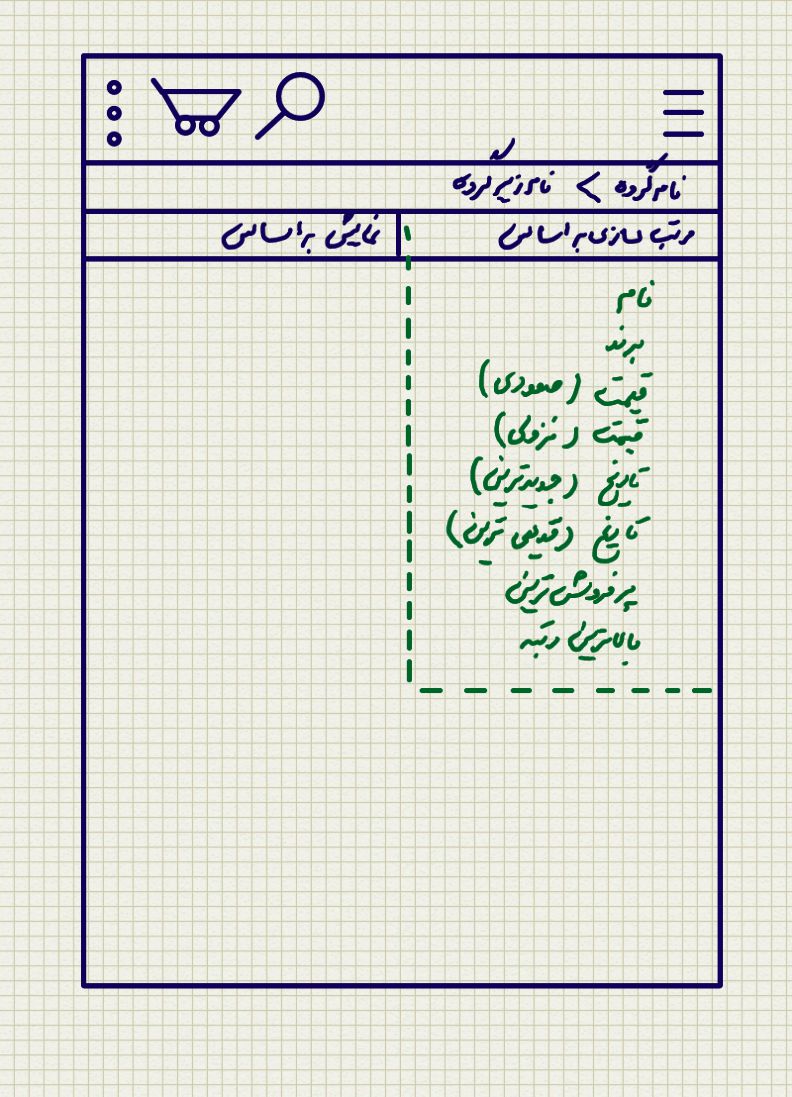 نام گروه > نام زیر گروه
مرتب سازی بر اساس
نمایش بر اساس
نام
برند
قیمت (صعودی)
قیمت (نزولی)
تاریخ (جدیدترین)
تاریخ (قدیمی ترین)
پرفروش ترین
بالاترین رتبه